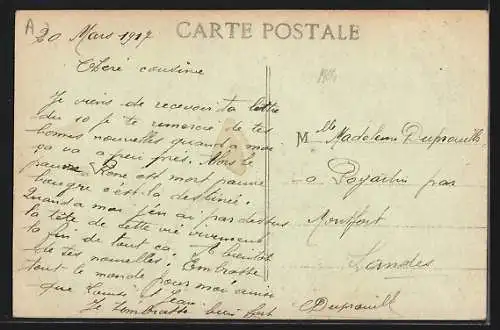 A
20 Mars 1917
CARTE POSTALE
Cheré cousine
Je viens de recevoir ta lettre
du 10 je te remercie de tes
bonnes nouvelles quand a moi
ça va a peu pres. Alors le
pauvre René est mort pauvre
bougre c'est la destinée.
Quand a moi j'en ai par dessus
la tête de cette vie vivement
la fin de tout ça. A bientot
de tes nouvelles. Embrasse
tout le monde pour moi ainsi
que
Je t'embrasse bien fort
Jean
Duprouilh
Mlle Madeleine Duprouilh
a Poyartin par
Montfort
Landes